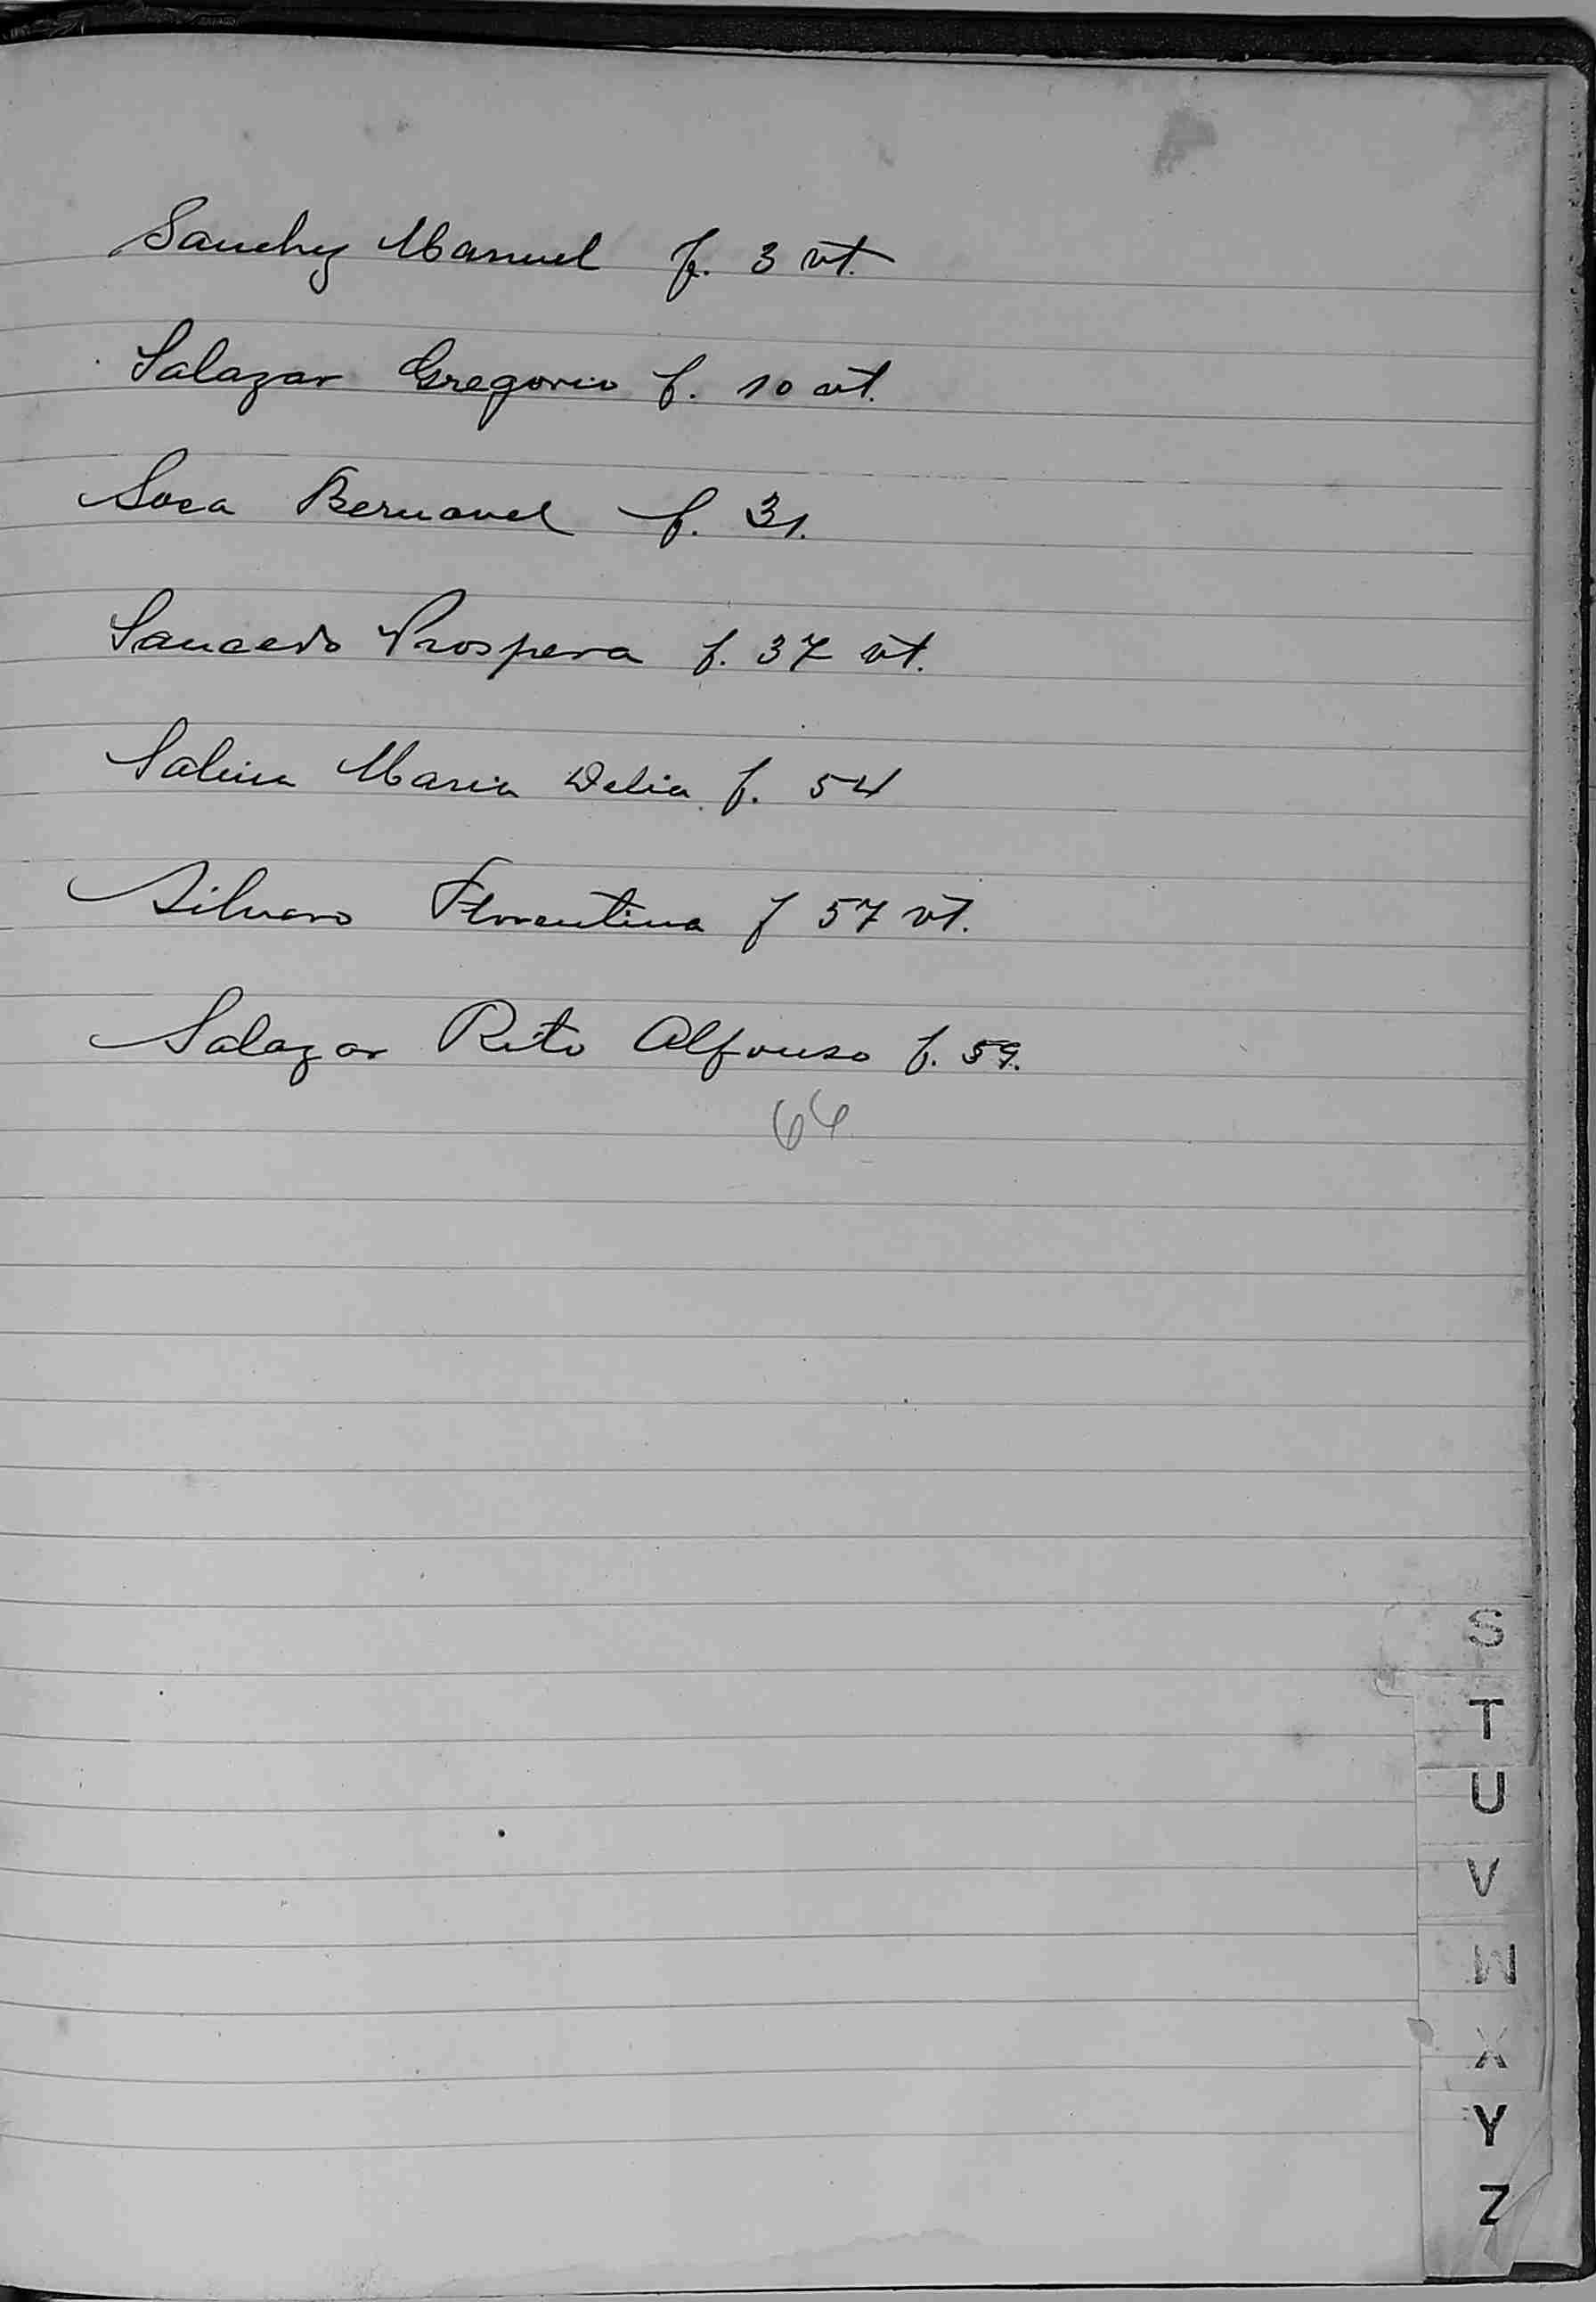 Sanchez Manuel f. 3 vt.
Salazar Gregorio f. 10 vt.
Sosa Bernavel f. 31.
Saucedo Prospera f. 37 vt.
Salina Maria Delia f. 54
Silvero Florentina f 57 vt.
Salazar Rito Alfonso f. 59.
64
S
T
U
V
W
X
Y
Z